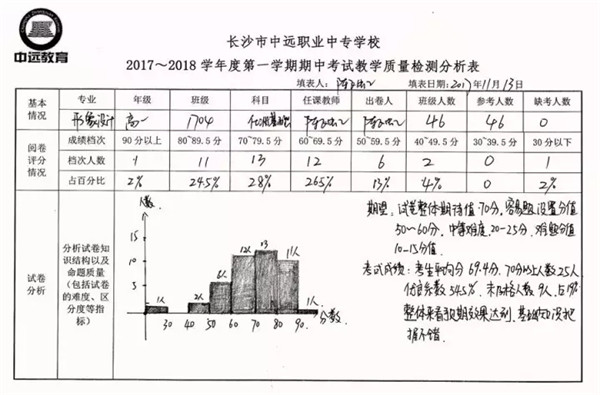 中远教育
长沙市中远职业中专学校
2017～2018 学年度第一学期期中考试教学质量检测分析表
填表人： 填表日期：2017年11月13日
基本情况 专业 年级 班级 科目 任课教师 出卷人 班级人数 参考人数 缺考人数
形象设计 高一 1704 46 46 0
阅卷评分情况 成绩档次 90 分以上 80~89.5 分 70~79.5 分 60~69.5 分 50~59.5 分 40~49.5 分 30~39.5 分 30 分以下
档次人数 1 11 13 12 6 2 0 1
占百分比 2% 24.5% 28% 26.5% 13% 4% 0 2%
试卷分析
分析试卷知识结构以及命题质量（包括试卷的难度、区分度等指标）
人数
15
10
5
1人 2人 6人 12人 13 11人 1人
30 40 50 60 70 80 90 分数
期望：试卷整体期待值70分，容易题设置分值
50～60分，中等难度20-25分，难题分值
10-15分值。
考试成绩：考生平均分69.4分，70分以上人数25人
优良系数54.5%，未及格人数9人，占19%
整体来看预期效果达到，基础知识把
握不错。